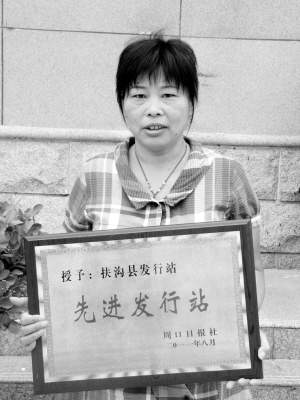 授予：扶沟县发行站
先进发行站
周口日报社
二〇一一年八月